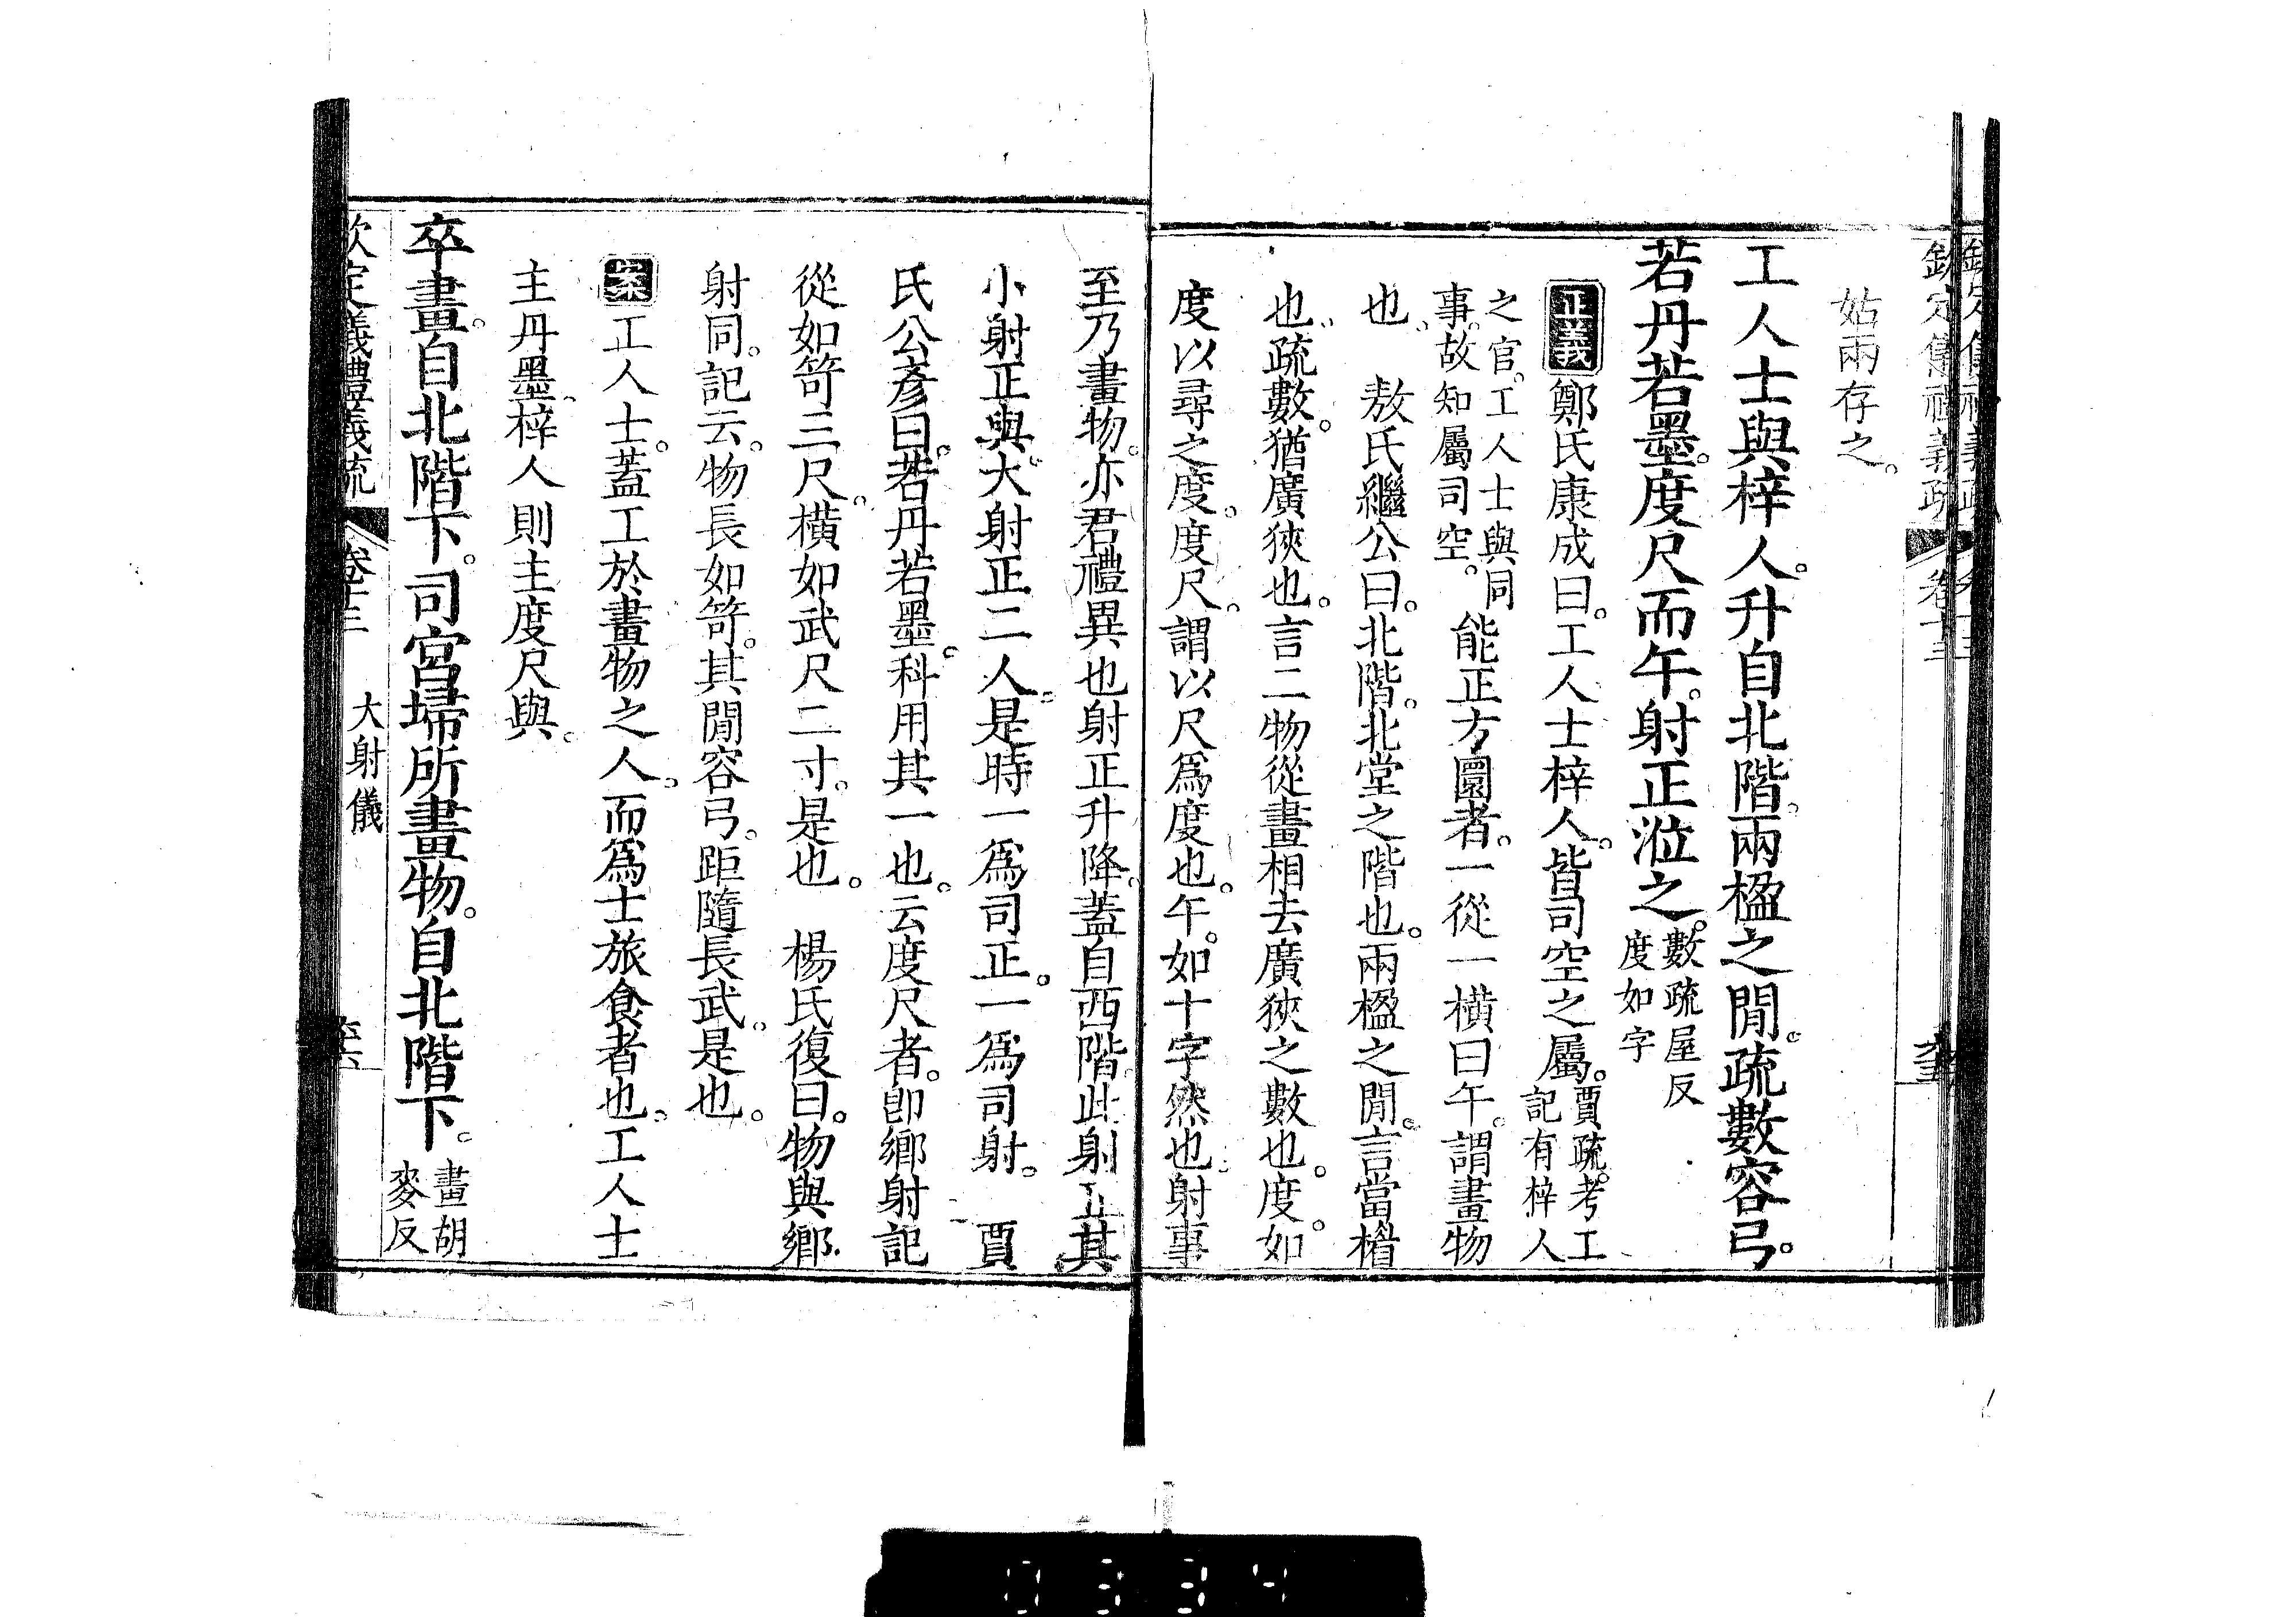 姑兩存之。
工人士與梓人。升自北階。兩楹之閒。疏數容弓。
若丹若墨。度尺而午。射正涖之。數疏屋反
度如字
正義鄭氏康成曰。工人士梓人。皆司空之屬。賈疏。考工
記有梓人
之官。工人士與同
事。故知屬司空。能正方圜者。一從一橫曰午。謂畫物
也 敖氏繼公曰。北階。北堂之階也。兩楹之閒。言當楣
也。疏數。猶廣狹也。言二物從畫相去廣狹之數也。度。如
度以尋之度。度尺。謂以尺爲度也。午。如十字然也。射事
至乃畫物。亦君禮異也射正升降。蓋自西階。此射正其
小射正與。大射正二人。是時一爲司正。一爲司射。 賈
氏公彥曰。若丹若墨。科用其一也。云度尺者。卽鄉射記
從如笴三尺。橫如武尺二寸。是也。 楊氏復曰。物與鄉
射同。記云。物長如笴。其閒容弓。距隨長武。是也。
案工人士。蓋工於畫物之人。而爲士旅食者也。工人士
主丹墨。梓人則主度尺與。
卒畫。自北階下。司宮埽所畫物。自北階下。畫胡
麥反
欽定儀禮義疏 卷十三 大射儀